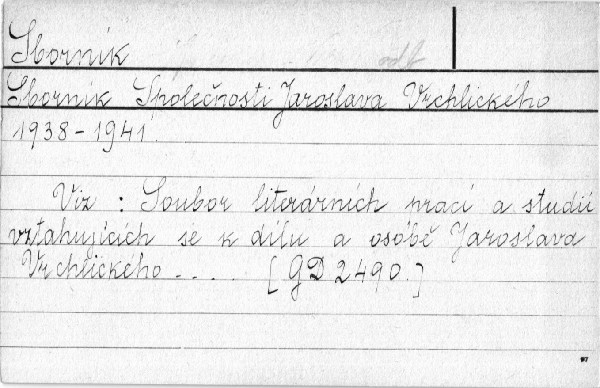 Sborník
Sborník Společnosti Jaroslava Vrchlického
1938-1941.
Viz : Soubor literárních prací a studií
vztahujících se k dílu a osobě Jaroslava
Vrchlického . . . . [GD 2490.]